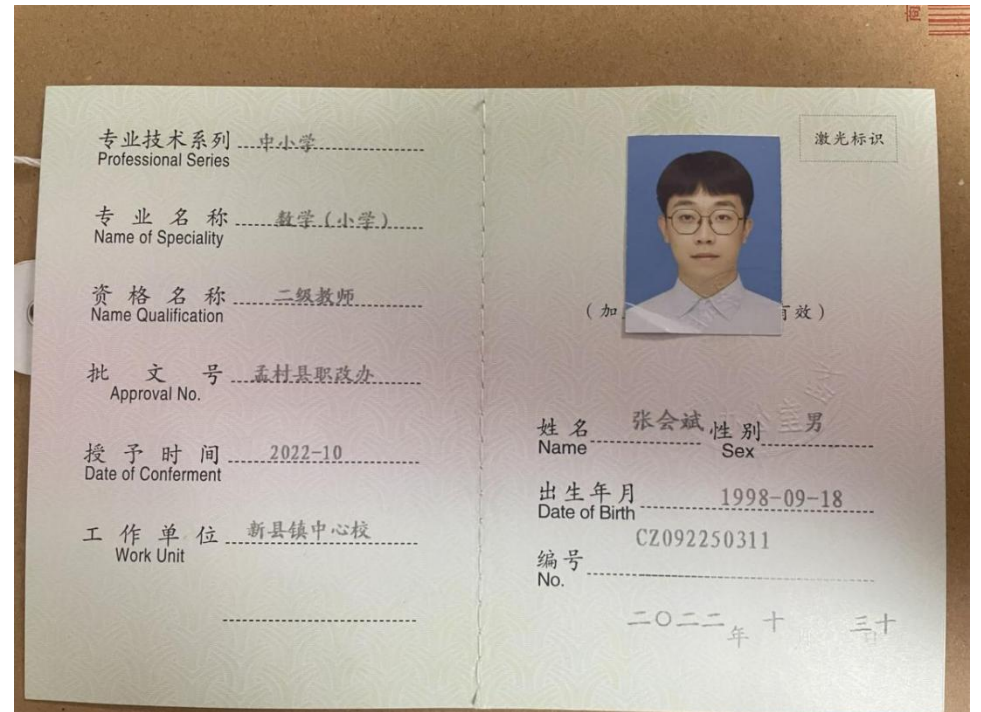 专业技术系列 中小学
Professional Series
专业名称 数学(小学)
Name of Speciality
资格名称 二级教师
Name Qualification
批文号 孟村县职改办
Approval No.
授予时间 2022-10
Date of Conferment
工作单位 新县镇中心校
Work Unit
激光标识
(加 有效)
姓名 张会斌 性别 男
Name Sex
出生年月 1998-09-18
Date of Birth
CZ092250311
编号
No.
二〇二二年 十 三十